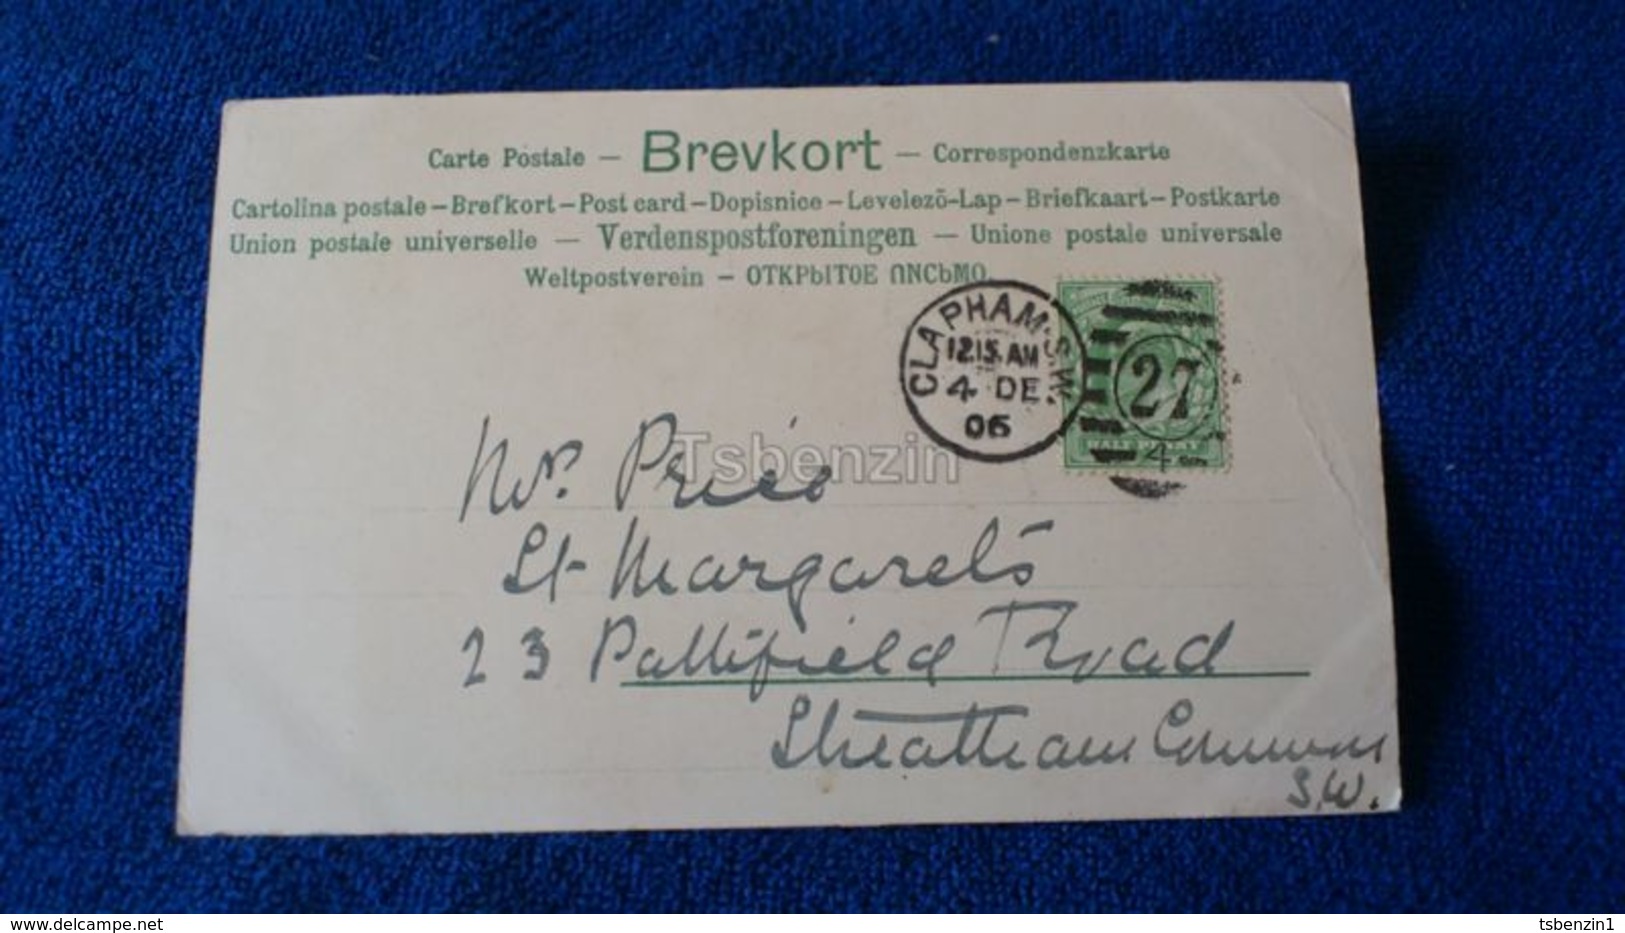 Carte Postale — Brevkort — Correspondenzkarte
Cartolina postale – Brefkort – Post card – Dopisnice – Levelezõ-Lap – Briefkaart – Postkarte
Union postale universelle — Verdenspostforeningen — Unione postale universale
Weltpostverein — ОТКРЫТОЕ ПИСЬМО.
CLAPHAM. S.W.
12.15. AM
4 DE
06
27
4
HALF PENNY
Tsbenzin
Mr. Price
St Margaret's
23 Road
Streatham Common
S.W.
delcampe.net
tsbenzin1